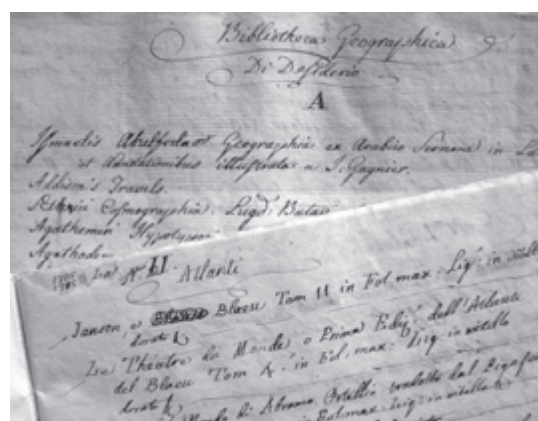 Bibliotheca Geographica
Di Desiderio
A
Ismaelis Abulfedae Geographia ex Arabico Sermone in La
et illustrata a J. Gagnier.
Addison's Travels.
Cosmographia. Lugd: Batav
Agathemeri
Agathode
La N.º II. Atlanti
Janson, e Blaeu Tom 11 in Fol. max. Lig: in vitello
dorato
Le Théatre du Monde o Prima Ediz: dell'Atlante
del Blaeu Tom 4. in Fol. max. Lig: in vitello
dorato
Mondo di Abramo Ortellio tradotto dal Pigafe
in Fol. max. Lig: in vitello